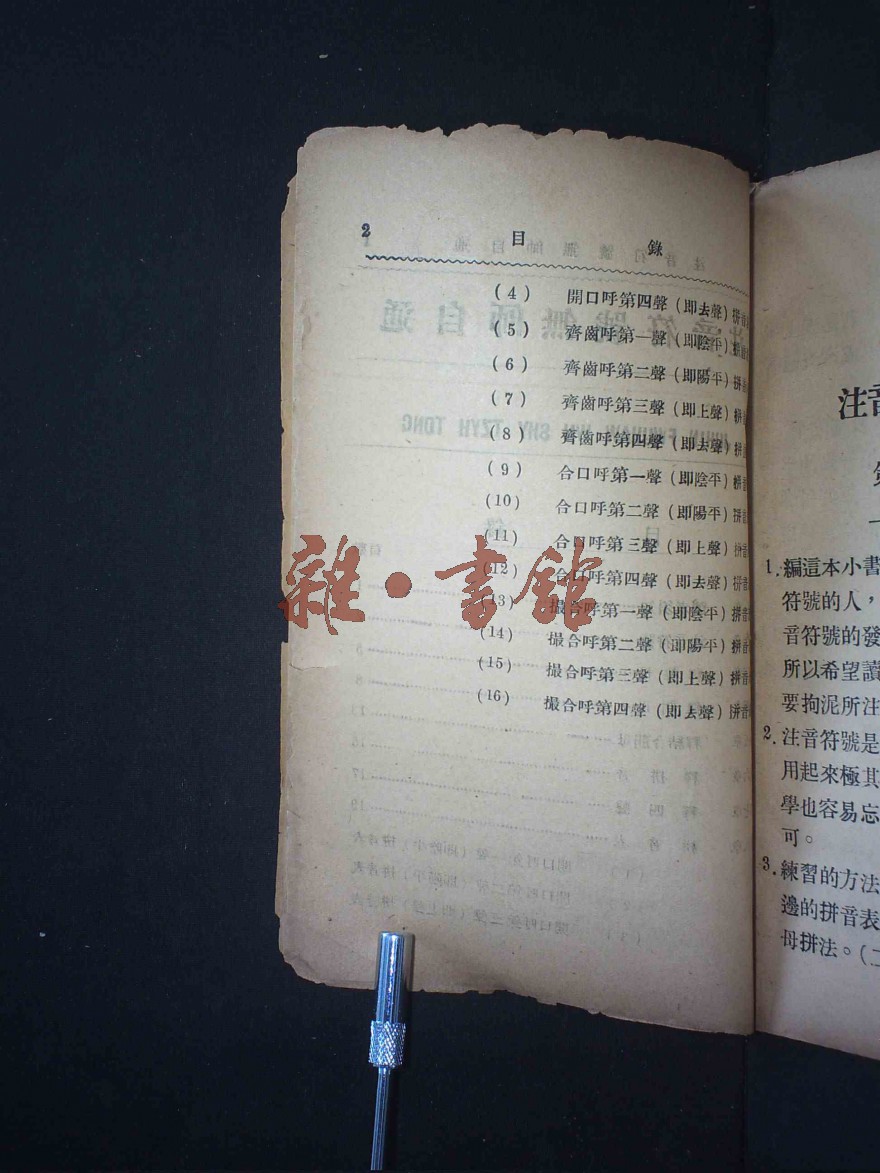 2 目 錄
(4) 開口呼第四聲(即去聲)拼音
(5) 齊齒呼第一聲(即陰平)拼音
(6) 齊齒呼第二聲(即陽平)拼音
(7) 齊齒呼第三聲(即上聲)拼音
(8) 齊齒呼第四聲(即去聲)拼音
(9) 合口呼第一聲(即陰平)拼音
(10) 合口呼第二聲(即陽平)拼音
(11) 合口呼第三聲(即上聲)拼音
(12) 合口呼第四聲(即去聲)拼音
(13) 撮合呼第一聲(即陰平)拼音
(14) 撮合呼第二聲(即陽平)拼音
(15) 撮合呼第三聲(即上聲)拼音
(16) 撮合呼第四聲(即去聲)拼音
雜·書館
注音
1.編這本小書
符號的人，
音符號的發
所以希望讀
要拘泥所注
2.注音符號是
用起來極其
學也容易忘
可。
3.練習的方法
邊的拼音表
母拼法。(二